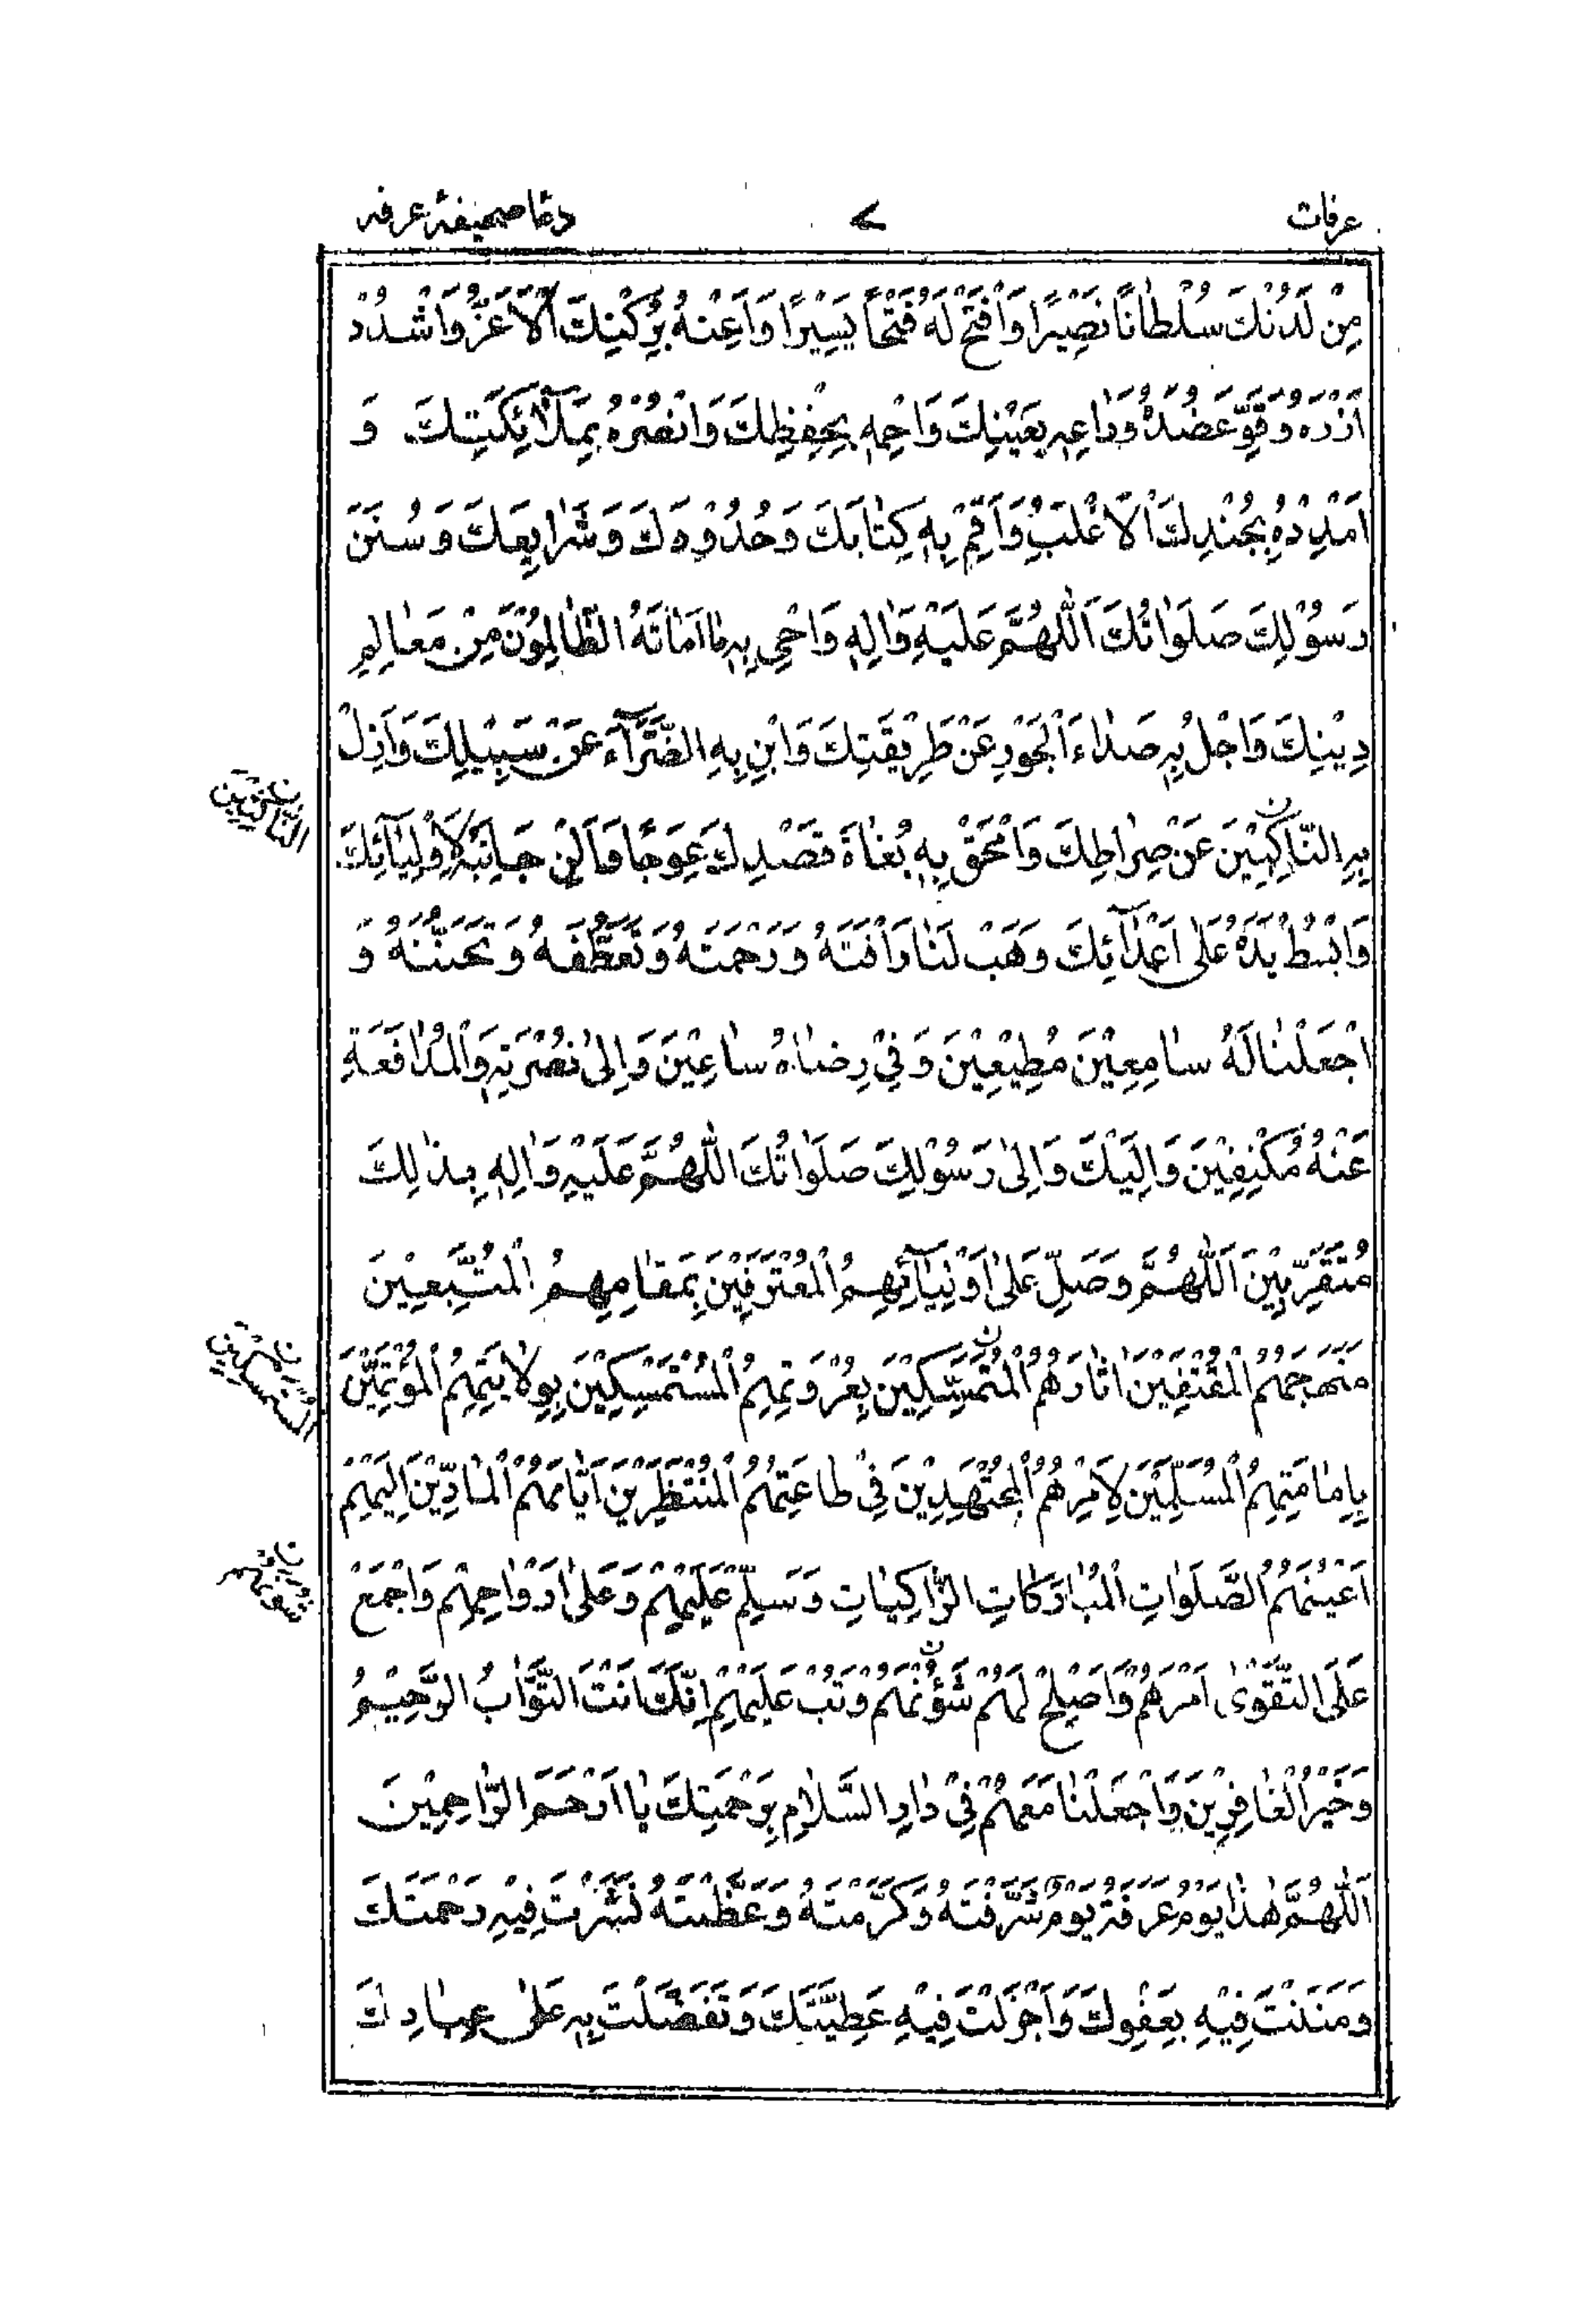 عرفات
۷
دعا صحیفۂ عرفه
مِنْ لَدُنْكَ سُلْطَانًا نَصِيْرًا وَافْتَحْ لَهُ فَتْحًا يَسِيْرًا وَاَعِنْهُ بِرُكْنِكَ الْاَعَزِّ وَاشْدُدْ
اَزْرَهُ وَقَوِّ عَضُدَهُ وَرَاعِهِ بِعَيْنِكَ وَاحْمِهِ بِحِفْظِكَ وَانْصُرْهُ بِمَلَآئِكَتِكَ وَ
امْدُدْهُ بِجُنْدِكَ الْاَغْلَبِ وَاَقِمْ بِهِ كِتَابَكَ وَحُدُوْدَكَ وَشَرَايِعَكَ وَسُنَنَ
رَسُوْلِكَ صَلَوَاتُكَ اَللّٰهُمَّ عَلَيْهِ وَاٰلِهِ وَاَحْيِ بِهِ مَا اَمَاتَهُ الظَّالِمُوْنَ مِنْ مَعَالِمِ
دِيْنِكَ وَاجْلُ بِهِ صَدَاءَ الْجَوْرِ عَنْ طَرِيْقَتِكَ وَابْنِ بِهِ الضَّرَّآءَ عَنْ سَبِيْلِكَ وَاَزِلْ
بِهِ النَّاكِبِيْنَ عَنْ صِرَاطِكَ وَامْحَقْ بِهِ بُغَاةَ قَصْدِكَ عِوَجًا وَاَلِنْ جَانِبَهُ لِاَوْلِيَآئِكَ
وَابْسُطْ يَدَهُ عَلٰى اَعْدَآئِكَ وَهَبْ لَنَا رَاْفَتَهُ وَرَحْمَتَهُ وَتَعَطُّفَهُ وَتَحَنُّنَهُ وَ
اجْعَلْنَا لَهُ سَامِعِيْنَ مُطِيْعِيْنَ وَفِيْ رِضَاهُ سَاعِيْنَ وَاِلٰى نُصْرَتِهِ وَالْمُدَافَعَةِ
عَنْهُ مُكْنِفِيْنَ وَاِلَيْكَ وَاِلٰى رَسُوْلِكَ صَلَوَاتُكَ اللّٰهُمَّ عَلَيْهِ وَاٰلِهِ بِذٰلِكَ
مُتَقَرِّبِيْنَ اَللّٰهُمَّ وَصَلِّ عَلٰى اَوْلِيَآئِهِمُ الْمُعْتَرِفِيْنَ بِمَقَامِهِمُ الْمُتَّبِعِيْنَ
مَنْهَجَهُمُ الْمُقْتَفِيْنَ اٰثَارَهُمُ الْمُتَمَسِّكِيْنَ بِعُرْوَتِهِمُ الْمُسْتَمْسِكِيْنَ بِوِلَايَتِهِمُ الْمُؤْتَمِّيْنَ
بِاِمَامَتِهِمُ الْمُسَلِّمِيْنَ لِاَمْرِهِمُ الْمُجْتَهِدِيْنَ فِيْ طَاعَتِهِمُ الْمُنْتَظِرِيْنَ اَيَّامَهُمُ الْمَادِّيْنَ اِلَيْهِمْ
اَعْيُنَهُمُ الصَّلَوَاتِ الْمُبَارَكَاتِ الزَّاكِيَاتِ وَسَلِّمْ عَلَيْهِمْ وَعَلٰى اَرْوَاحِهِمْ وَاجْمَعْ
عَلَى التَّقْوٰى اَمْرَهُمْ وَاَصْلِحْ لَهُمْ شُؤُنَهُمْ وَتُبْ عَلَيْهِمْ اِنَّكَ اَنْتَ التَّوَّابُ الرَّحِيْمُ
وَخَيْرُ الْغَافِرِيْنَ وَاجْعَلْنَا مَعَهُمْ فِيْ دَارِ السَّلَامِ بِرَحْمَتِكَ يَا اَرْحَمَ الرَّاحِمِيْنَ
اَللّٰهُمَّ هٰذَا يَوْمُ عَرَفَةَ يَوْمٌ شَرَّفْتَهُ وَكَرَّمْتَهُ وَعَظَّمْتَهُ نَشَرْتَ فِيْهِ رَحْمَتَكَ
وَمَنَنْتَ فِيْهِ بِعَفْوِكَ وَاَجْزَلْتَ فِيْهِ عَطِيَّتَكَ وَتَفَضَّلْتَ بِهِ عَلٰى عِبَادِكَ